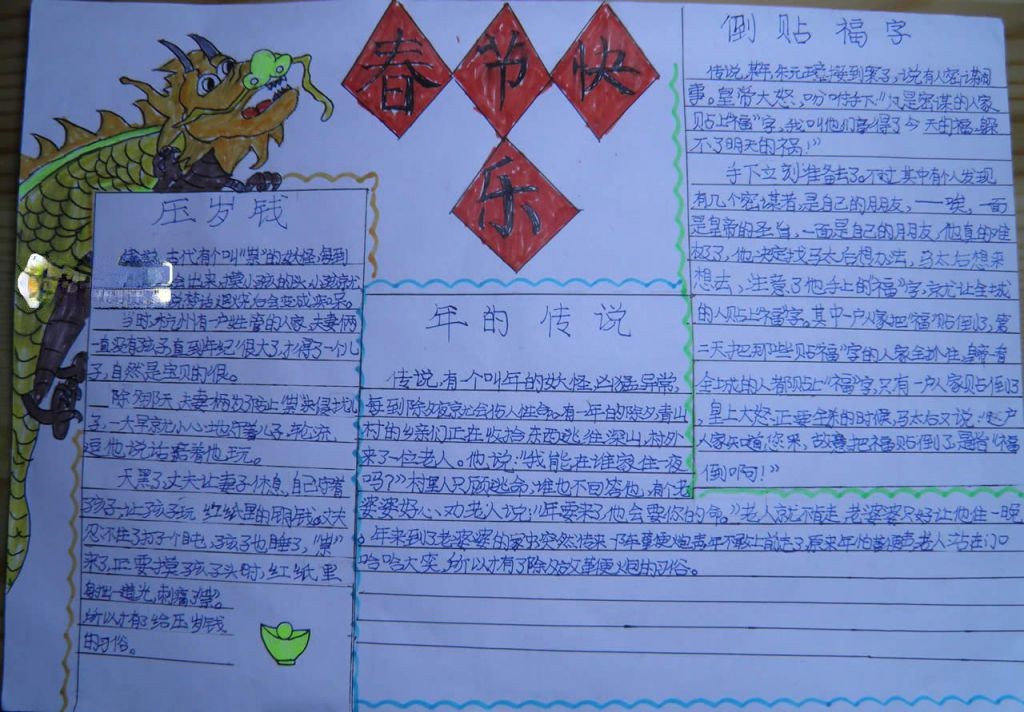 春节快
乐
压岁钱
古代有个叫"祟"的妖怪,每到
出来,摸小孩的头,小孩
当时,杭州有一户姓管的人家,夫妻俩
一直没有孩子,直到年纪很大了,才得了一个儿
子,自然是宝贝的很。
除夕那天,夫妻俩为了防止祟来侵扰儿
子,一大早就小心地守着儿子,轮流
逗他说话,陪着他玩。
天黑了,丈夫让妻子休息,自己守着
孩子,让孩子玩红纸里的铜钱。丈夫
忍不住了打了个盹,孩子也睡了,"祟"
来了,正要摸孩子头时,红纸里
射出一道光,刺痛了"祟"。
所以才有了给压岁钱
的习俗。
年的传说
传说,有一个叫年的妖怪,凶猛异常,
每到除夕夜就会伤人性命。有一年的除夕,青山
村的乡亲们正在收拾东西逃往深山,村外
来了一位老人。他说:"我能在谁家住一夜
吗?"村里人只顾逃命,谁也不回答他,有个老
婆婆好心劝老人说:"年要来了,他会要你的命。"老人就不肯走,老婆婆只好让他住一晚
。年来到了老婆婆的家中,突然传来
哈哈大笑,所以才有了除夕放鞭炮的习俗。
倒贴福字
传说,某年,朱元璋接到密报,说有人密谋闹
事。皇帝大怒,吩咐手下:"凡是密谋的人家
贴上"福"字,我叫他们享得了今天的福,躲
不了明天的祸!"
手下立刻准备去了。不过其中有个人发现
有几个密谋者,是自己的朋友,——唉,一面
是皇帝的圣旨,一面是自己的朋友,他真的难
极了,他决定找马太后想办法,马太后想来
想去,注意了他手上的"福"字,就让全城
的人贴上"福"字。其中一户人家把"福"贴倒了,第
二天,把那些贴"福"字的人家全抓住,皇帝一看
全城的人都贴上"福"字,只有一户人家贴倒了
,皇上大怒,正要全杀的时候,马太后又说:"这户
人家知道您来,故意把福贴倒了,是指"福
倒"啊!"